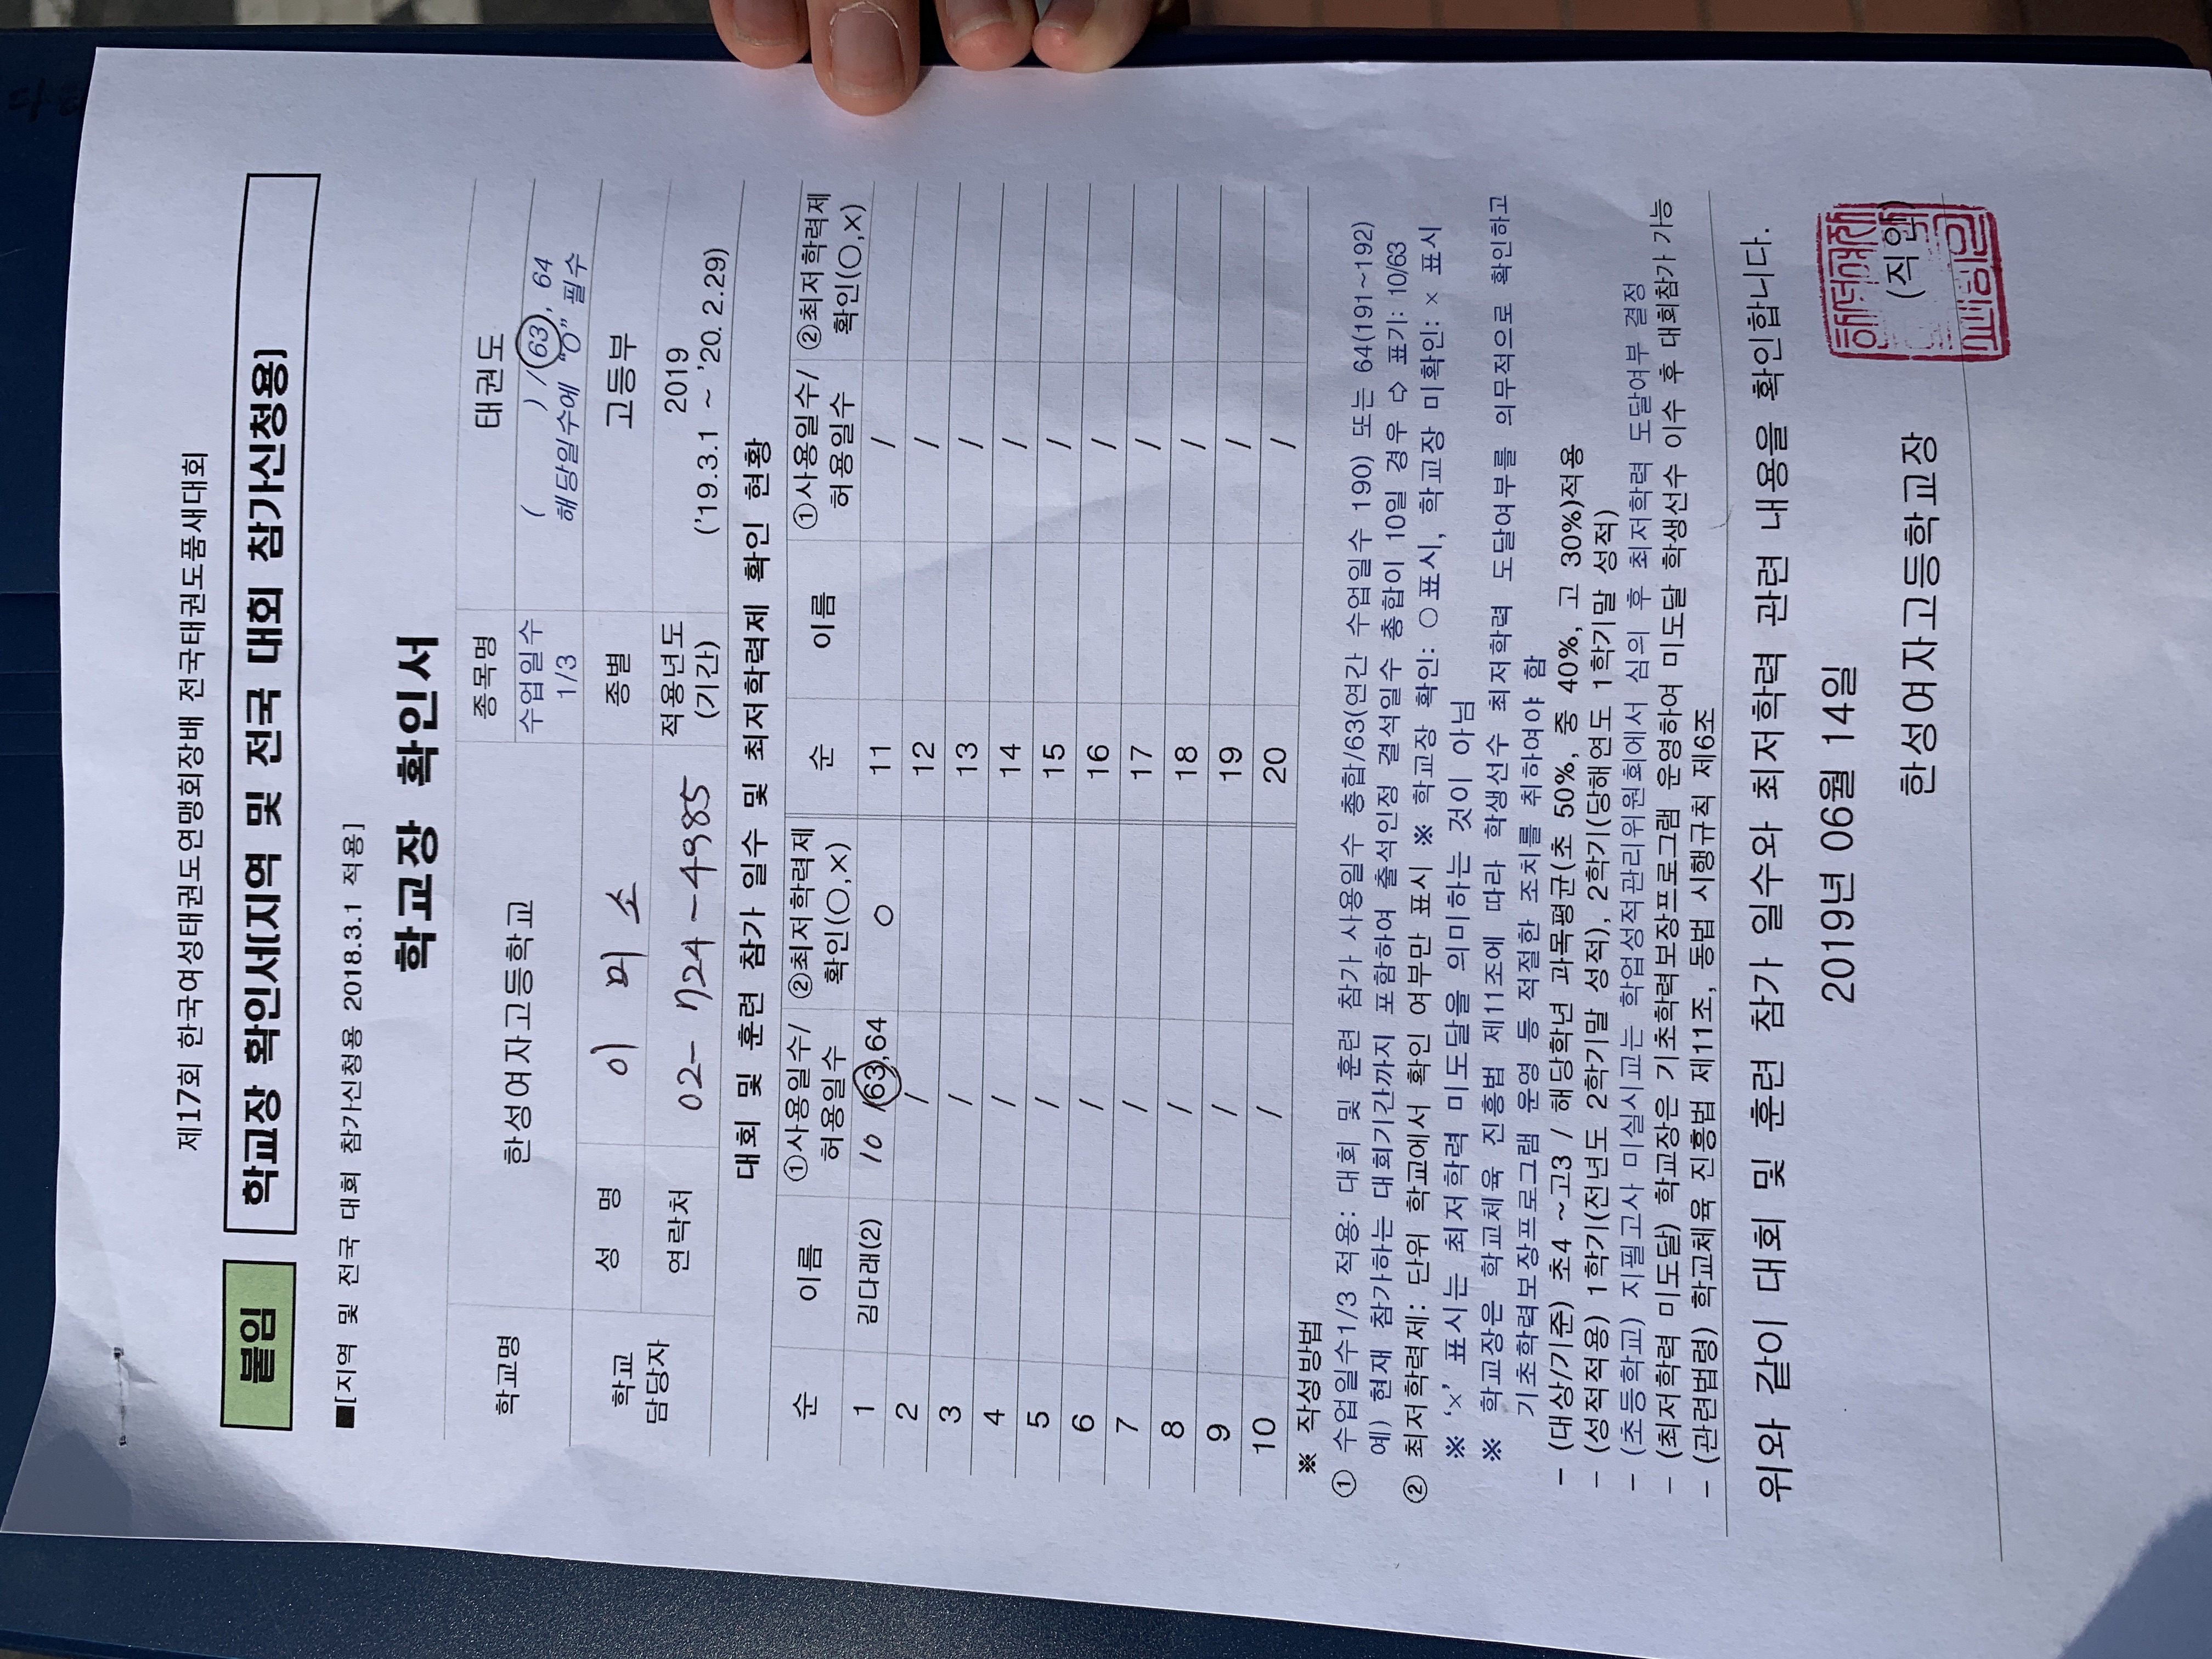 제17회 한국여성태권도연맹회장배 전국태권도품새대회
붙임 학교장 확인서(지역 및 전국 대회 참가신청용)
■[지역 및 전국 대회 참가신청용 2018.3.1 적용]
학교장 확인서
학교명 한성여자고등학교 종목명 태권도
수업일수 1/3 ( ) / 63, 64
해당일수에 "O" 필수
학교 담당자 성 명 이 미 소 종별 고등부
연락처 02-724-4385 적용년도 (기간) 2019
('19.3.1 ~ '20.2.29)
대회 및 훈련 참가 일수 및 최저학력제 확인 현황
순 이름 ①사용일수/허용일수 ②최저학력제 확인(○,×) 순 이름 ①사용일수/허용일수 ②최저학력제 확인(○,×)
1 김다래(2) 10 /63,64 ○ 11 /
2 / 12 /
3 / 13 /
4 / 14 /
5 / 15 /
6 / 16 /
7 / 17 /
8 / 18 /
9 / 19 /
10 / 20 /
※ 작성방법
① 수업일수1/3 적용: 대회 및 훈련 참가 사용일수 총합/63(연간 수업일수 190) 또는 64(191~192)
예) 현재 참가하는 대회기간까지 포함하여 출석인정 결석일수 총합이 10일 경우 ⇨ 표기: 10/63
② 최저학력제: 단위 학교에서 확인 여부만 표시 ※ 학교장 확인: ○표시, 학교장 미확인: × 표시
※ '×' 표시는 최저학력 미도달을 의미하는 것이 아님
※ 학교장은 학교체육 진흥법 제11조에 따라 학생선수 최저학력 도달여부를 의무적으로 확인하고
기초학력보장프로그램 운영 등 적절한 조치를 취하여야 함
- (대상/기준) 초4 ~고3 / 해당학년 과목평균(초 50%, 중 40%, 고 30%)적용
- (성적적용) 1학기(전년도 2학기말 성적), 2학기(당해연도 1학기말 성적)
- (초등학교) 지필고사 미실시교는 학업성적관리위원회에서 심의 후 최저학력 도달여부 결정
- (최저학력 미도달) 학교장은 기초학력보장프로그램 운영하여 미도달 학생선수 이수 후 대회참가 가능
- (관련법령) 학교체육 진흥법 제11조, 동법 시행규칙 제6조
위와 같이 대회 및 훈련 참가 일수와 최저학력 관련 내용을 확인합니다.
2019년 06월 14일
한성여자고등학교장 (직인)